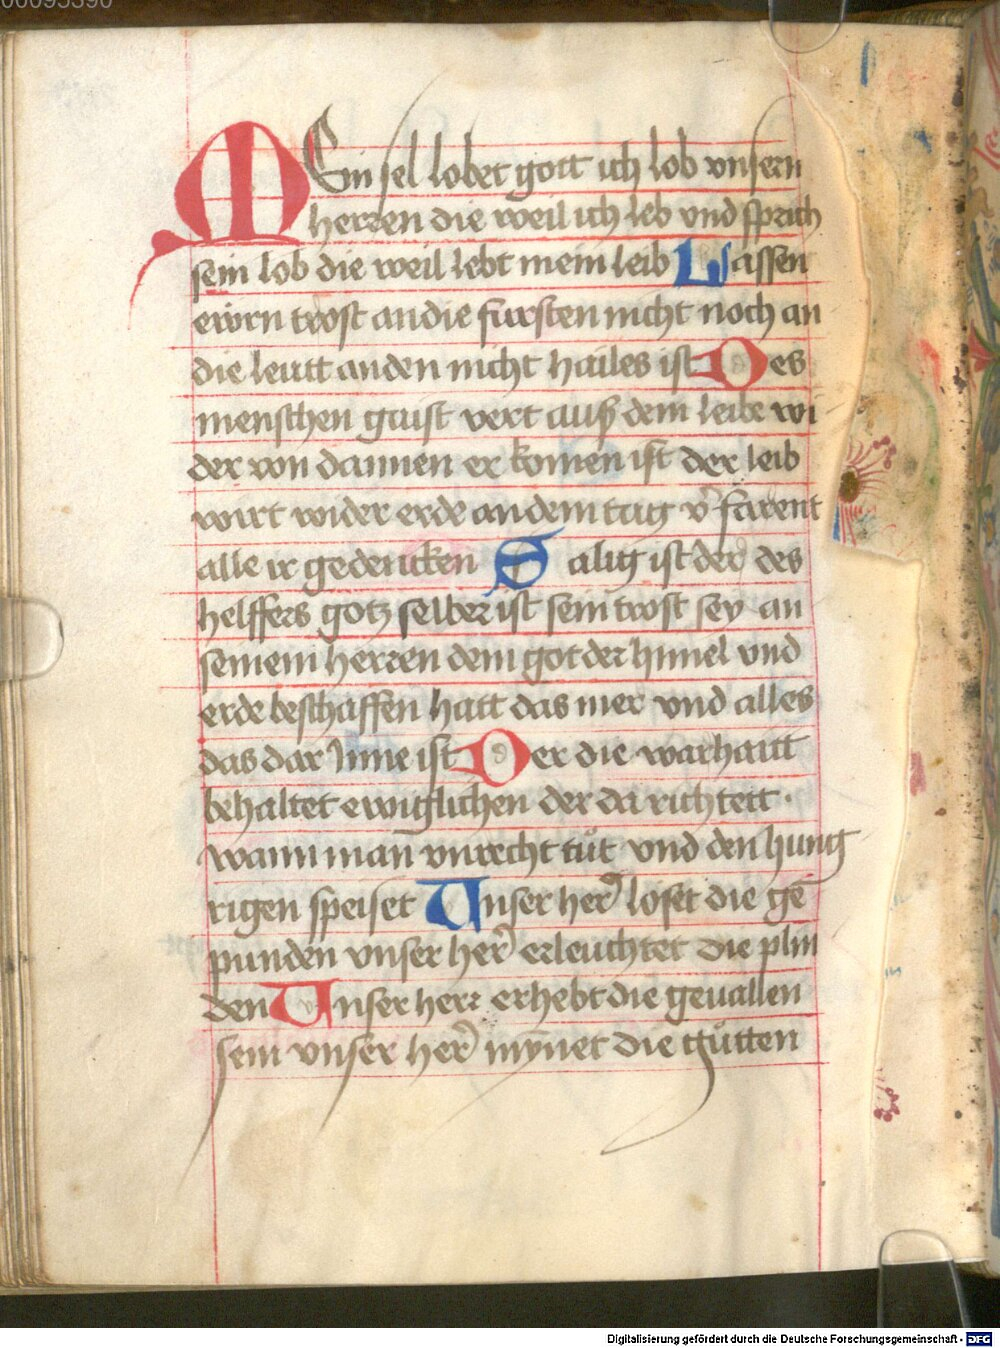 00095390
MEin sel lobet gott ich lob vnsern
herren die weil ich leb vnd sprich
sein lob die weil lebt mein leib Lassen
ewrn trost an die fursten nicht noch an
die leutt an den nicht hailes ist Des
menschen gaist vert auß dem leibe wi
der von dannen er komen ist der leib
wirt wider erde an dem tag v̾farent
alle ir gedencken Salig ist der des
helffers gotz selber ist sein trost sey an
seinem herren dem got der himel vnd
erde beschaffen hatt das mer vnd alles
das dar Inne ist Der die warhaitt
behaltet ewigklichen der da richtett ·
wann man vnrecht tůt vnd den hung
rigen speiset Vnser her̾ loset die ge
punden vnser her̾ erleuchtet die plin
den Vnser herr erhebt die geuallen
sein vnser her̾ mynet die gůtten
Digitalisierung gefördert durch die Deutsche Forschungsgemeinschaft - DFG